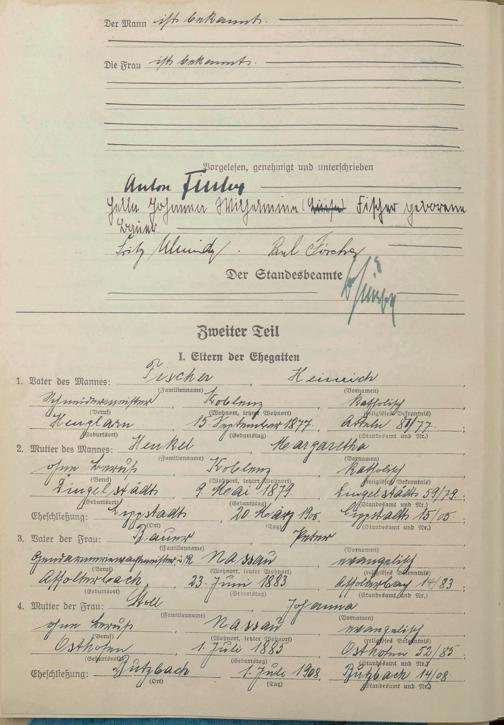 Der Mann ist bekannt.
Die Frau ist bekannt.
Vorgelesen, genehmigt und unterschrieben
Anton Fischer
Johanna Wilhelmine Fischer geborene
Bauer
Fritz Karl
Der Standesbeamte
Zweiter Teil
I. Eltern der Ehegatten
1. Vater des Mannes: Fischer Heinrich
(Familienname) (Vornamen)
Schneidermeister Koblenz katholisch
(Beruf) (Wohnort, letzter Wohnort) (religiöses Bekenntnis)
Henglarn 15 September 1877 Atteln 80/77
(Geburtsort) (Geburtstag) (Standesamt und Nr.)
2. Mutter des Mannes: Henkel Margaretha
(Familienname) (Vornamen)
ohne Beruf Koblenz katholisch
(Beruf) (Wohnort, letzter Wohnort) (religiöses Bekenntnis)
Dingelstädt 9 Mai 1879 Dingelstädt 59/79
(Geburtsort) (Geburtstag) (Standesamt und Nr.)
Eheschließung: Lippstadt 20 März 1905 Lippstadt 15/05
(Ort) (Tag) (Standesamt und Nr.)
3. Vater der Frau: Bauer Peter
(Familienname) (Vornamen)
Gendarmeriewachtmeister i.R. Nassau evangelisch
(Beruf) (Wohnort, letzter Wohnort) (religiöses Bekenntnis)
Affolterbach 23. Juni 1883 Affolterbach 14/83
(Geburtsort) (Geburtstag) (Standesamt und Nr.)
4. Mutter der Frau: Stoll Johanna
(Familienname) (Vornamen)
ohne Beruf Nassau evangelisch
(Beruf) (Wohnort, letzter Wohnort) (religiöses Bekenntnis)
Osthofen 1. Juli 1885 Osthofen 52/85
(Geburtsort) (Geburtstag) (Standesamt und Nr.)
Eheschließung: Butzbach 1. Juli 1908 Butzbach 14/08
(Ort) (Tag) (Standesamt und Nr.)